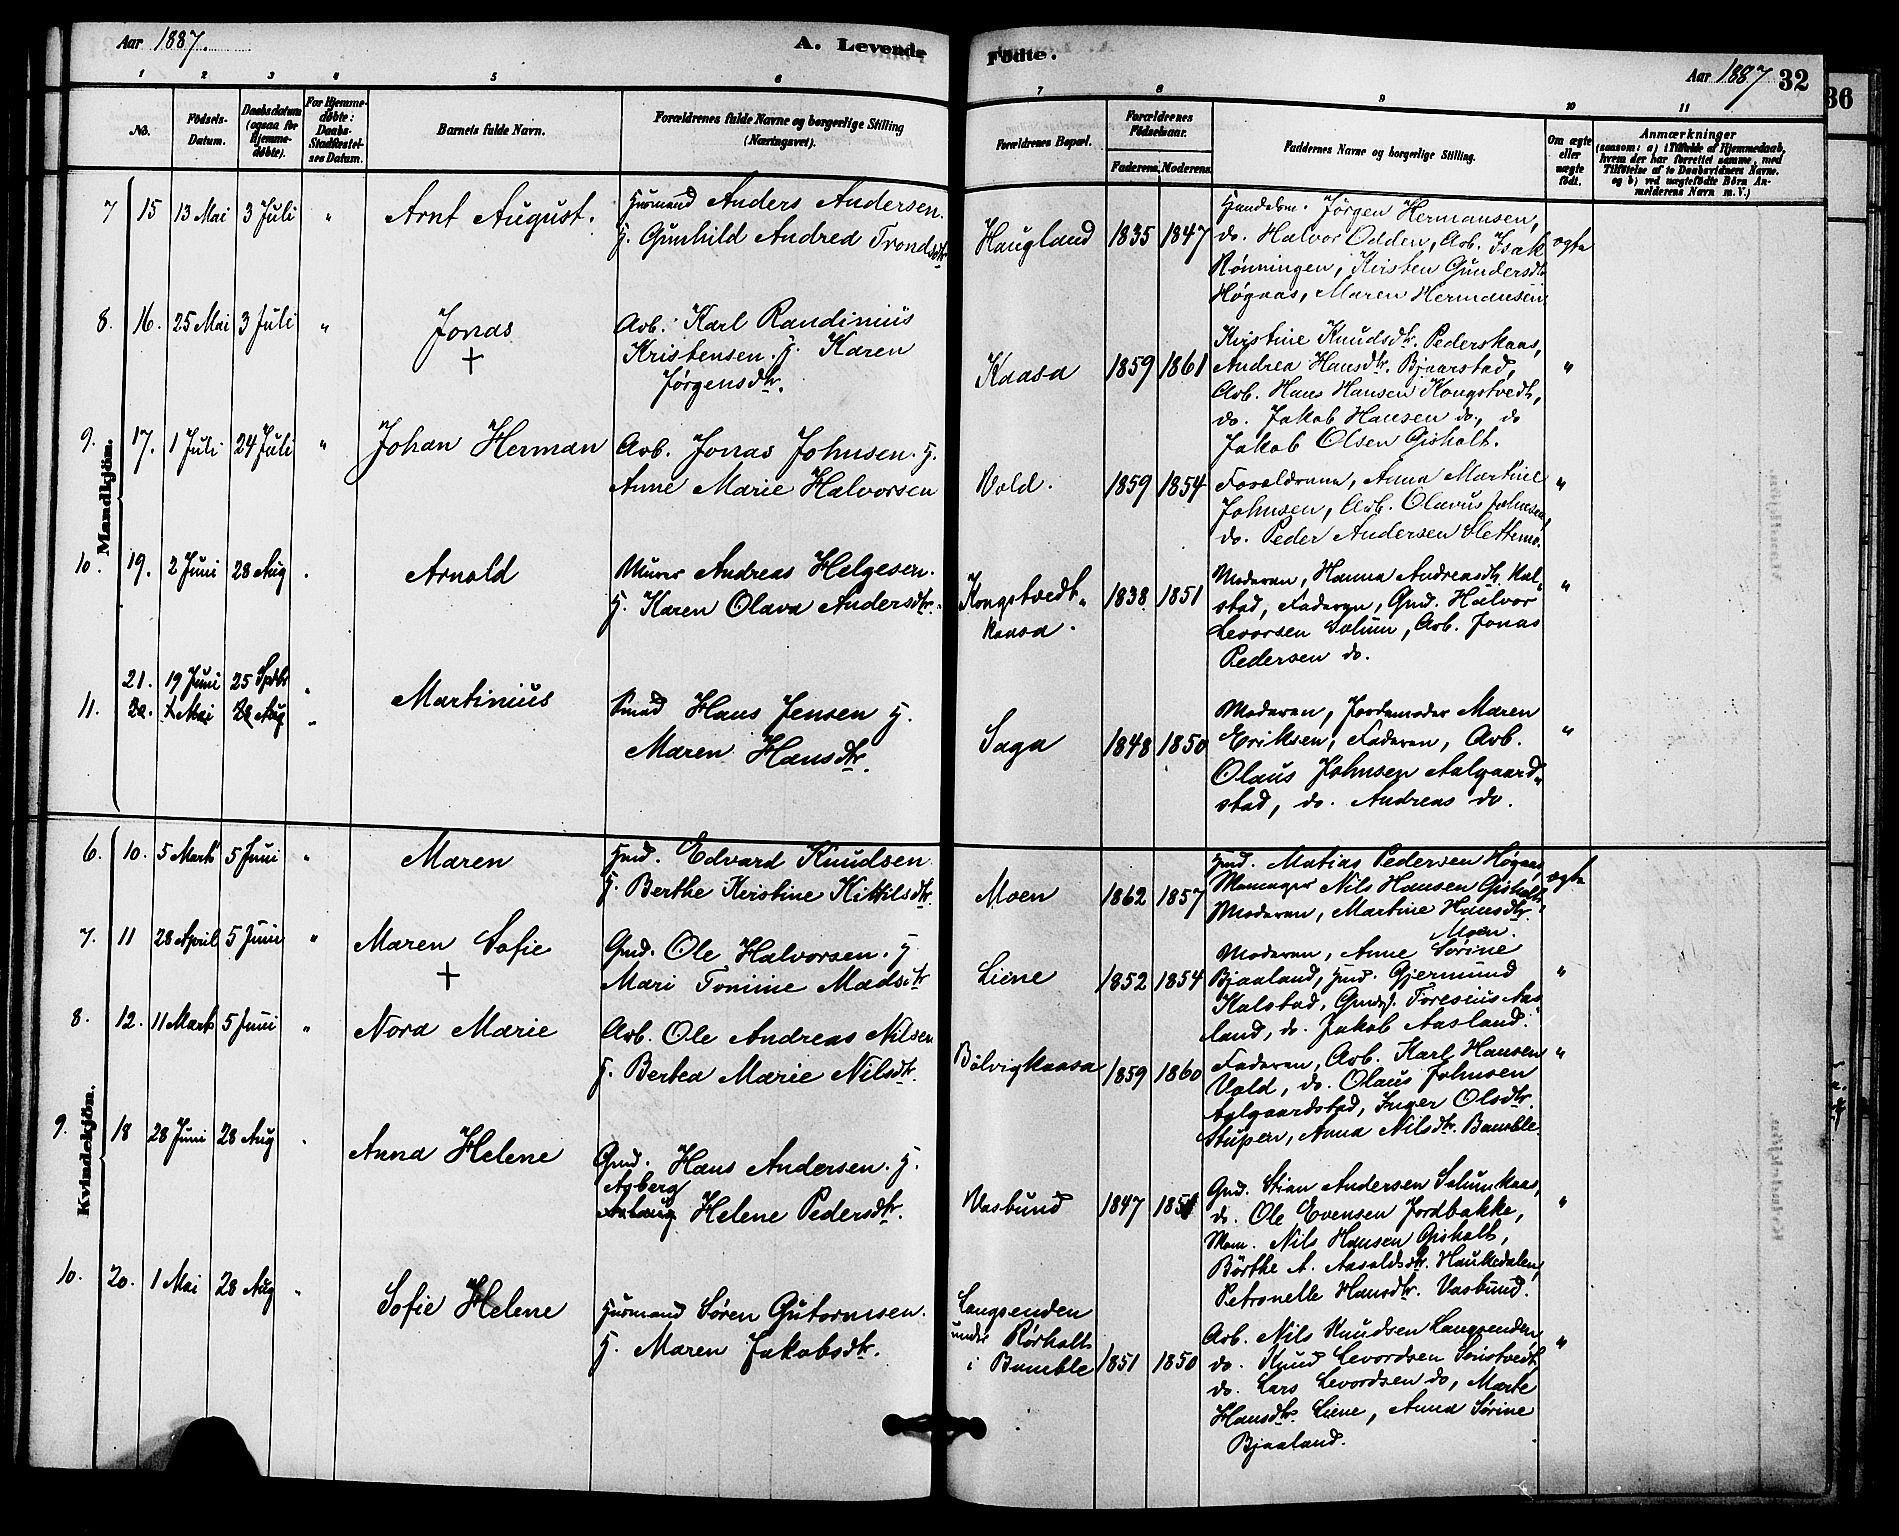 Aar 1887.
A. Levende
1 2 3 4 5 6
No.
Födsels-Datum.
Daabsdatum (ogsaa for Hjemmedøbte).
For Hjemmedøbte: Daabs-Stadfæstelses Datum.
Barnets fulde Navn.
Forældrenes fulde Navne og borgerlige Stilling
(Næringsvei).
Mandkjön.
7 15 13 Mai 3 Juli " Arnt August. Husmand Anders Andersen.
H. Gunhild Andrea Trondsdtr
8. 16. 25 Mai 3 Juli " Jonas Arb. Karl Randinius
+ Kristensen. H. Karen
Jørgensdtr.
9. 17. 1 Juli 24 Juli " Johan Herman Arb. Jonas Johnsen. H.
Anne Marie Halvorsen
10. 19. 2 Juni 28 Aug . Arnold Murer Andreas Helgesen.
H. Karen Olava Andersdtr.
21. 19 Juni 25 Sptbr "
11. Martinius Smed Hans Jensen H.
Maren Hansdtr.
Kvindekjön.
6. 10. 5 Marts 5 Juni " Maren Hmd. Edvard Knudsen
H. Berthe Kirstine Kittilsdtr.
7. 11 28 April 5 Juni " Maren Sofie Gmd. Ole Halvorsen. H
+ Mari Tomine Madsdtr
8. 12. 11 Marts 5 Juni " Nora Marie Arb. Ole Andreas Nilsen
H. Bertea Marie Nilsdtr.
9. 18 28 Juni 28 Aug . Anna Helene Gmd. Hans Andersen. H.
Asberg
Helene Pedersdtr.
10. 20. 1 Mai 28 Aug " Sofie Helene Husmand Søren Gutormsen.
H. Maren Jakobsdtr.
Födte.
Aar 1887 32
36
7 8 9 10 11
Forældrenes Bopæl.
Forældrenes Födselsaar.
Faderens. Moderens.
Faddernes Navne og borgerlige Stilling.
Om ægte eller uægte födt.
Anmærkninger
(saasom: a) i Tilfælde af Hjemmedaab,
hvem der har forrettet samme, med
Tilføielse af to Daabsvidners Navne.
og b) ved uægtefødte Börn Anmelderens Navn m. V.)
Haugland 1835 1847 Jørgen Hermansen,
do. Halvor Odden, Arb. Isak ægte
Rönningen, Kirsten Gundersdtr
Høgaas, Maren Hermansen
Kaasa 1859 1861 Kristine Knudsdtr. Pederskaas,
Andrea Hansdtr. Bjaarstad, "
Arb. Hans Hansen Kongstvedt,
do. Jakob Hansen do., do
Jakob Olsen Gisholt.
Vold. 1859 1854 Forældrene, Anna Martine "
Johnsen, Arb. Olavus Johnsen,
do. Peder Andersen Slettemo.
Kongstvedt-
kaasa. 1838 1851 Moderen, Hanna Andreasdtr. Kal-
stad, Faderen, Gmd. Halvor "
Levorsen Solum, Arb. Jonas
Pedersen do.
Saga 1848 1850 Moderen, Jordemoder Maren
Eriksen, Faderen, Arb. "
Olaus Johnsen Aalgaard-
stad, do. Andreas do.
Moen 1862 1857 Hmd. Matias Pedersen Høgaas, ægte
Nils Hansen Gisholt,
Moderen, Martine Hansdtr.
Moen.
Liene 1852 1854 Moderen, Anne Sørine
Bjaaland, Hmd. Gjermund "
Kalstad, Toresius Aas-
land, do. Jakob Aasland.
Bölvigkaasa 1859 1860 Faderen, Arb. Karl Hansen "
Vold, do. Olaus Johnsen
Aalgaardstad, Inger Olsdtr.
Stupen, Anna Nilsdtr. Bamble.
Vasbund 1847 1851 Gmd. Stian Andersen Solumkaas,
do. Ole Evensen Jordbakke, "
Mom. Nils Hansen Gisholt,
Börthe A. Aasoldsdtr. Haukedalen,
Petronelle Hansdtr. Vasbund.
Langsenden
under Rörholt
i Bamble 1851 1850 Arb. Nils Knudsen Langsenden,
do. Knud Levordsen Sönstvedt, "
do. Lars Levordsen do, Marte
Hansdtr. Liene, Anna Sörine
Bjaaland.